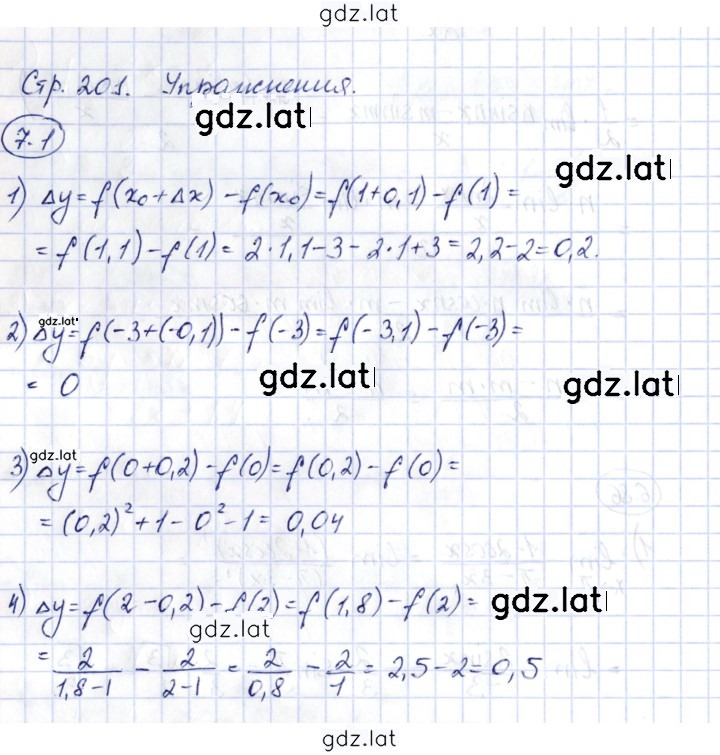 gdz.lat
Стр. 201. Упражнения.
gdz.lat
7.1
gdz.lat
1) Δy = f(x₀ + Δx) - f(x₀) = f(1+0,1) - f(1) =
= f(1,1) - f(1) = 2·1,1-3-2·1+3 = 2,2-2 = 0,2.
gdz.lat
2) Δy = f(-3+(-0,1)) - f(-3) = f(-3,1) - f(-3) =
= 0
gdz.lat
gdz.lat
gdz.lat
3) Δy = f(0+0,2) - f(0) = f(0,2) - f(0) =
= (0,2)² + 1 - 0² - 1 = 0,04
4) Δy = f(2-0,2) - f(2) = f(1,8) - f(2) =
gdz.lat
gdz.lat
= 2/(1,8-1) - 2/(2-1) = 2/0,8 - 2/1 = 2,5-2 = 0,5
gdz.lat